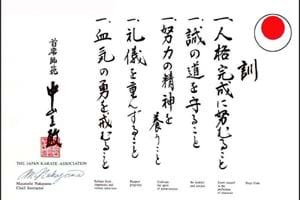 訓
一、人格完成に努むること
一、誠の道を守ること
一、努力の精神を養うこと
一、礼儀を重んずること
一、血気の勇を戒むること
首席師範
中山正敏
THE JAPAN KARATE ASSOCIATION
M. Nakayama
Masatoshi Nakayama
Chief Instructor
Refrain from
impetuous and
violent behavior
Respect
propriety
Cultivate
the spirit
of perseverance
Be faithful
and sincere